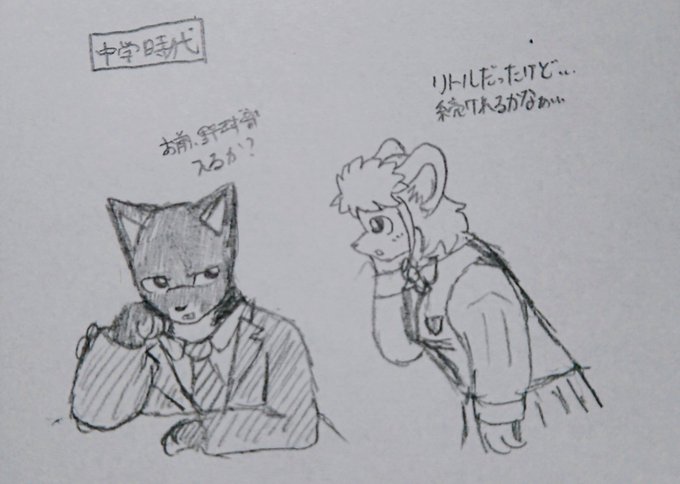 中学時代
お前、野球部
入るか?
リトルだったけど...
続けれるかなぁ...